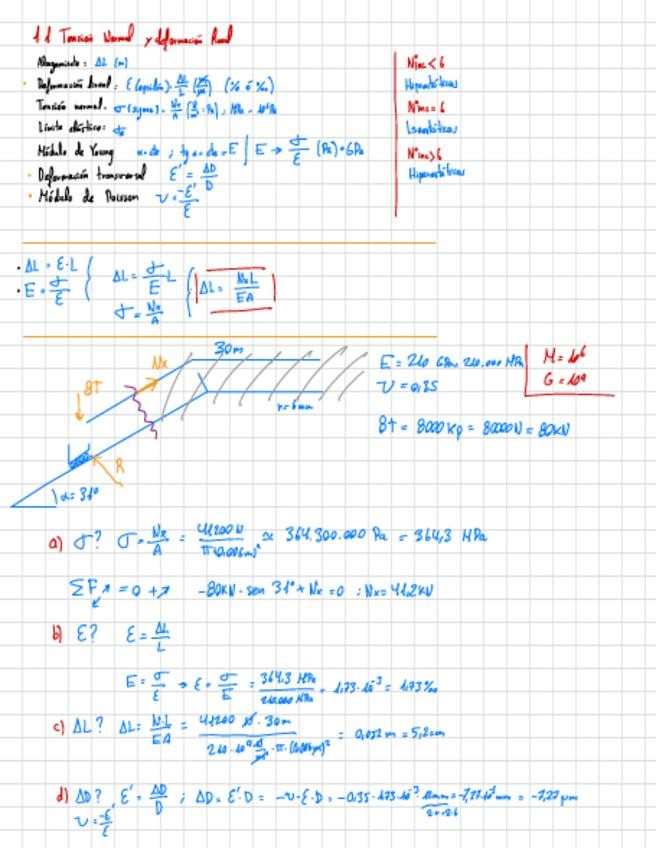 1.1 Tensión Normal y deformación lineal
Alargamiento: ΔL (m)
Deformación lineal: ε (epsilon) = ΔL/L (m/m) (% ó ‰)
Tensión normal: σ (sygma) = Nx/A [N/m² = Pa] ; MPa = 10⁶Pa
Límite elástico:
Módulo de Young tg α = = E | E → σ/ε (Pa) → GPa
Deformación transversal ε' = ΔD/D
Módulo de Poisson ν = -ε'/ε
Ninc < 6
Hipostáticas
Ninc = 6
Isostáticas
Ninc > 6
Hiperestáticas
ΔL = ε·L
E = σ/ε
ΔL = σ/E L
σ = Nx/A
ΔL = NxL/EA
30m
Nx
8T
r=6mm
R
α=31º
E = 210 GPa = 210.000 MPa
ν = 0,35
M = 10⁶
G = 10⁹
8t = 8000 kp = 80000N = 80kN
a) σ? σ = Nx/A = 41200N/π(0,006m)² ≃ 364.300.000 Pa = 364,3 MPa
ΣF = 0 +↗ -80kN · sen 31º + Nx = 0 ; Nx = 41,2kN
b) ε? ε = ΔL/L
E = σ/ε → ε = σ/E = 364,3 MPa/210.000 MPa = 1,73·10⁻³ = 1,73‰
c) ΔL? ΔL = N·L/EA = 41200 N · 30m/210·10⁹ N/m² · π · (0,006m)² = 0,052 m = 5,2cm
d) ΔD? ε' = ΔD/D ; ΔD = ε'·D = -ν·ε·D = -0,35 · 1,73·10⁻³ · 12mm = -7,27·10⁻³ mm = -7,27 μm
ν = -ε'/ε
2r = 2·6